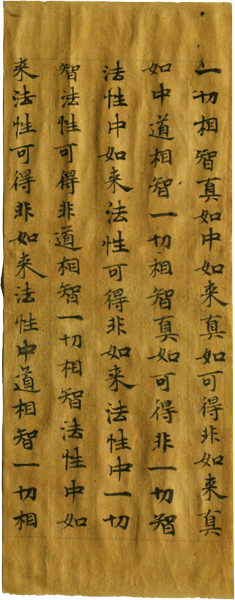 一切相智真如中如来真如可得非如来真
如中道相智一切相智真如可得非一切智
法性中如来法性可得非如来法性中一切
智法性可得非道相智一切相智法性中如
来法性可得非如来法性中道相智一切相